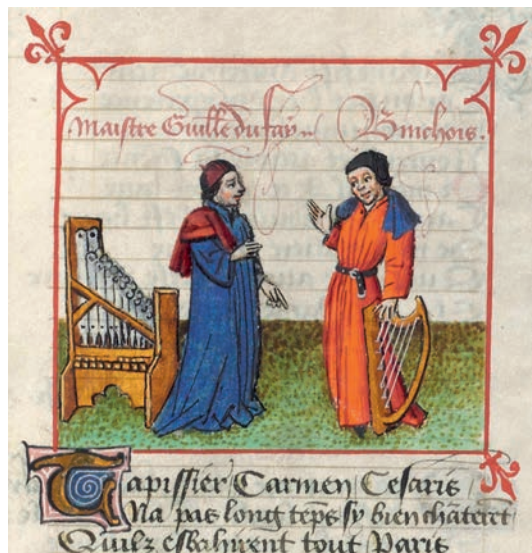 Maistre Guillē du fay .. Binchois.
Tapissier Carmen Cesaris
Na pas long tēps sy bien chāterēt
Quilz esbahirent tout Paris